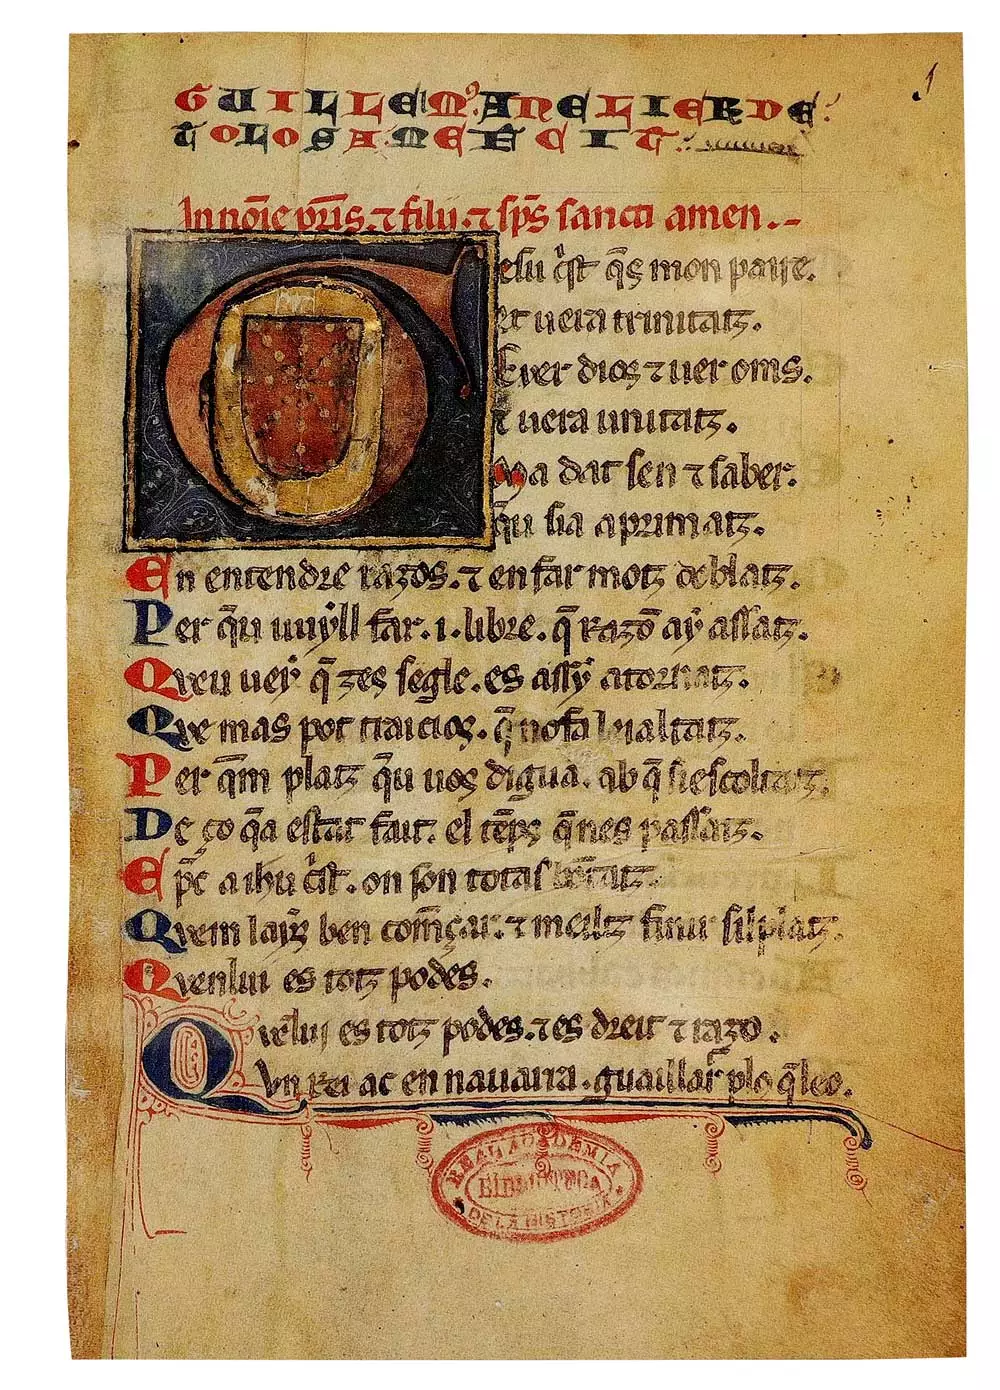 1
GUILLEM9 ANELIER DE
TOLOSA ME FECIT:
In nōie pr̄is. ⁊ filii. ⁊ sp̄s sancti amen.-
esu c̓st q̄s mon paire.
Et uera trinitatz.
E ver dios ⁊ uer oms.
E uera unitatz.
ma dat sen ⁊ saber.
q̄u sia aprimatz.
En entendre razos. ⁊ enfar motz deblatz.
Per q̄u uuyll far .1. libre. q̄ razō ay assatz.
Qveu vey q̄ zes segle. es assy atornatz.
Qve mas pot traicios. q̄ nofa leialtatz.
Per q̄m platz q̄u uos digua. ab q̄ siescoltatz.
De ço q̄a estat fait. el tēps q̄nes passatz.
E p̄c a ihu c̓st. on son totas
Qvem layx ben com̄çar. ⁊ meiltz finir silplatz.
Qvenlui es totz podes.
Qvēlui es totz podes. ⁊ es dreit ⁊ razo.
Vn rei ac en nauarra. guaillart plo q̄ leo.
REAL ACADEMIA
BIBLIOTECA
DE LA HISTORIA